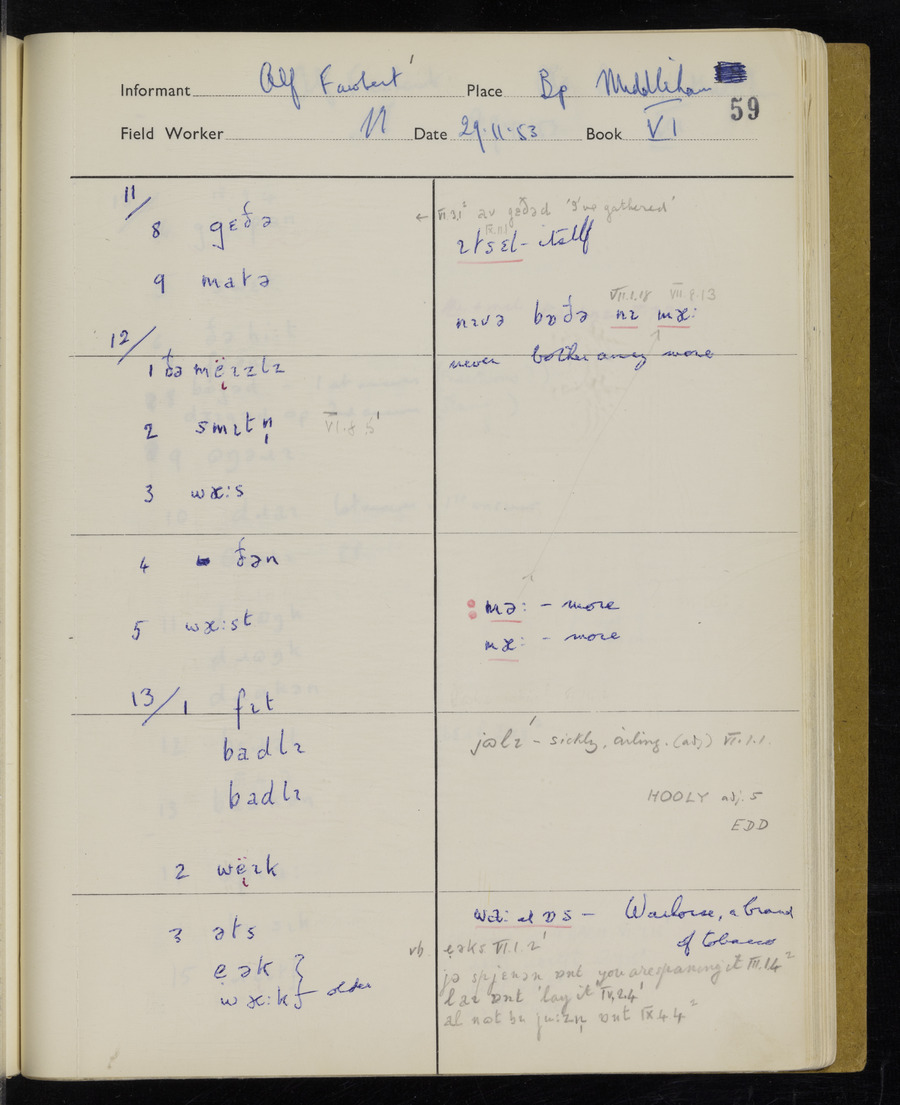 Informant Alf Place Bp Middleham
59
Field Worker Date 29.11.53 Book VI
11/
8 gɛðə
← VI.3.1² av gɛðəd 'I've gathered'
ɪtsɛl - itself
9 matə
nɪvə bɒðə nɪ mæ:
VII.1.18 VII.8.13
never bother any more
12/
1 ðə mëɪzlɪ
2 smɪtn̩ VI.8.5'
3 wæ:s
4 ðən
mə: - more
5 wæ:st
mæ: - more
13/1 fɪt
badlɪ
jɒlɪ' - sickly, (adj) VI.1.1.
badlɪ
HOOLY adj. 5
EDD
2 wëɪk
3 əts
- Warhorse, a brand
of tobacco
vb. ęəks VI.1.2'
ęək }
wæ:k } older
jə spjɛnən ɒnt you are spaning it III.1.4²
laɪ ɒnt 'lay it' IV.2.4'
al nɒt bɪ ju:zn̩ ɒnt IX.4.4²